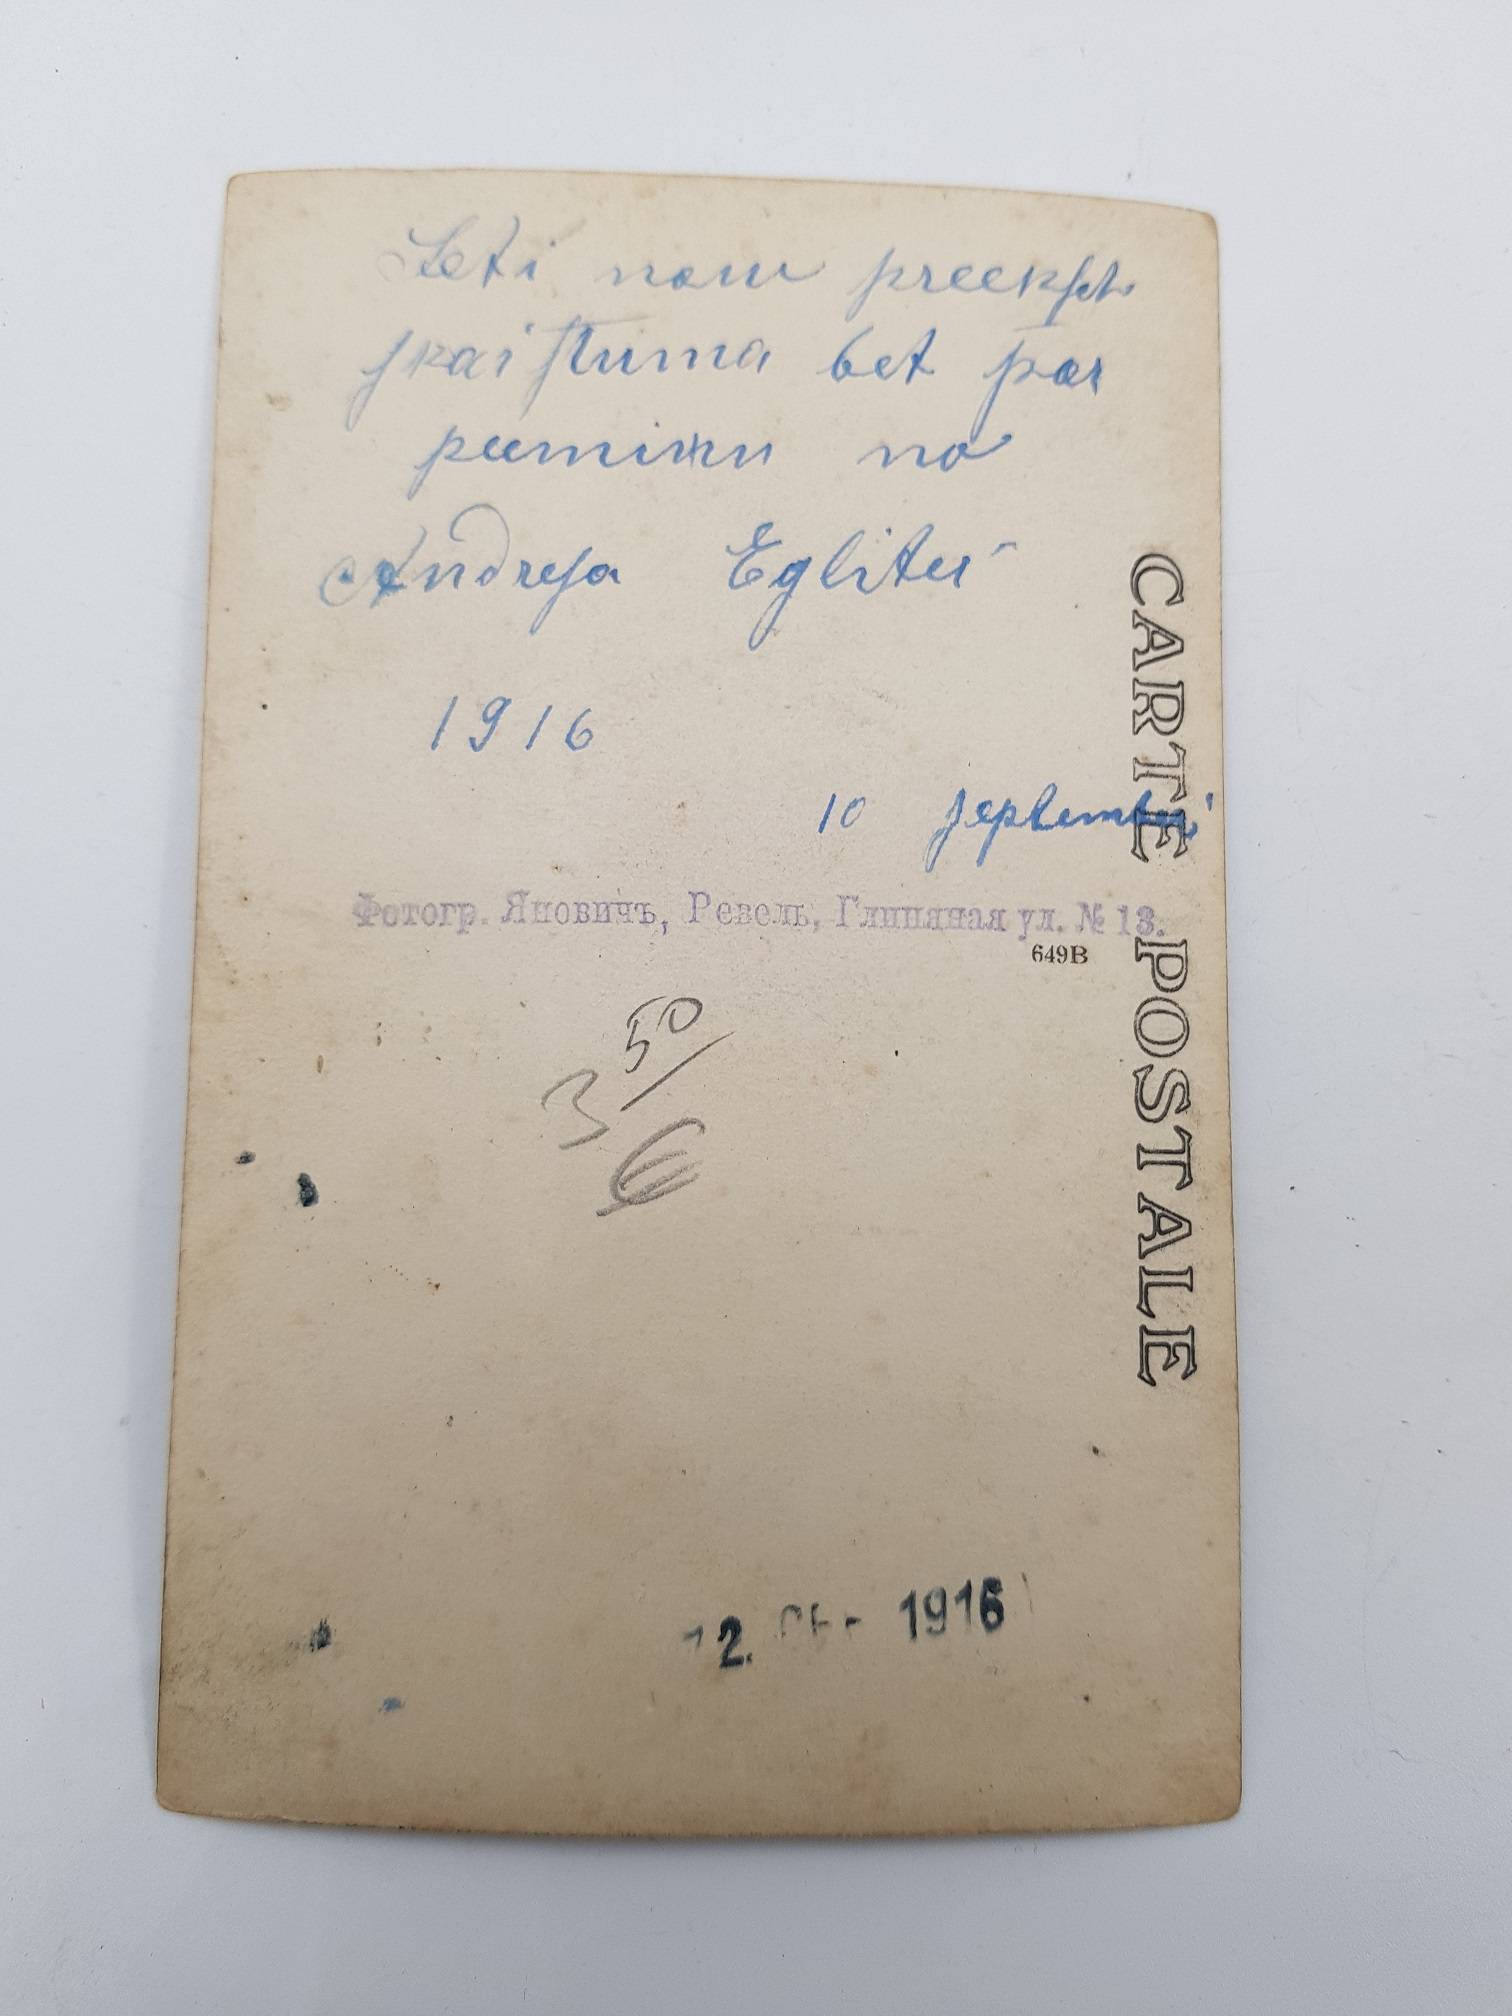 nou preeksch
skaistuma bet par
peeminu no
Andreja Eglites
1916
10 septembri
Фотогр. Яновичъ, Ревель, Глиняная ул. № 13.
649B
CARTE POSTALE
3 50
12. 1916